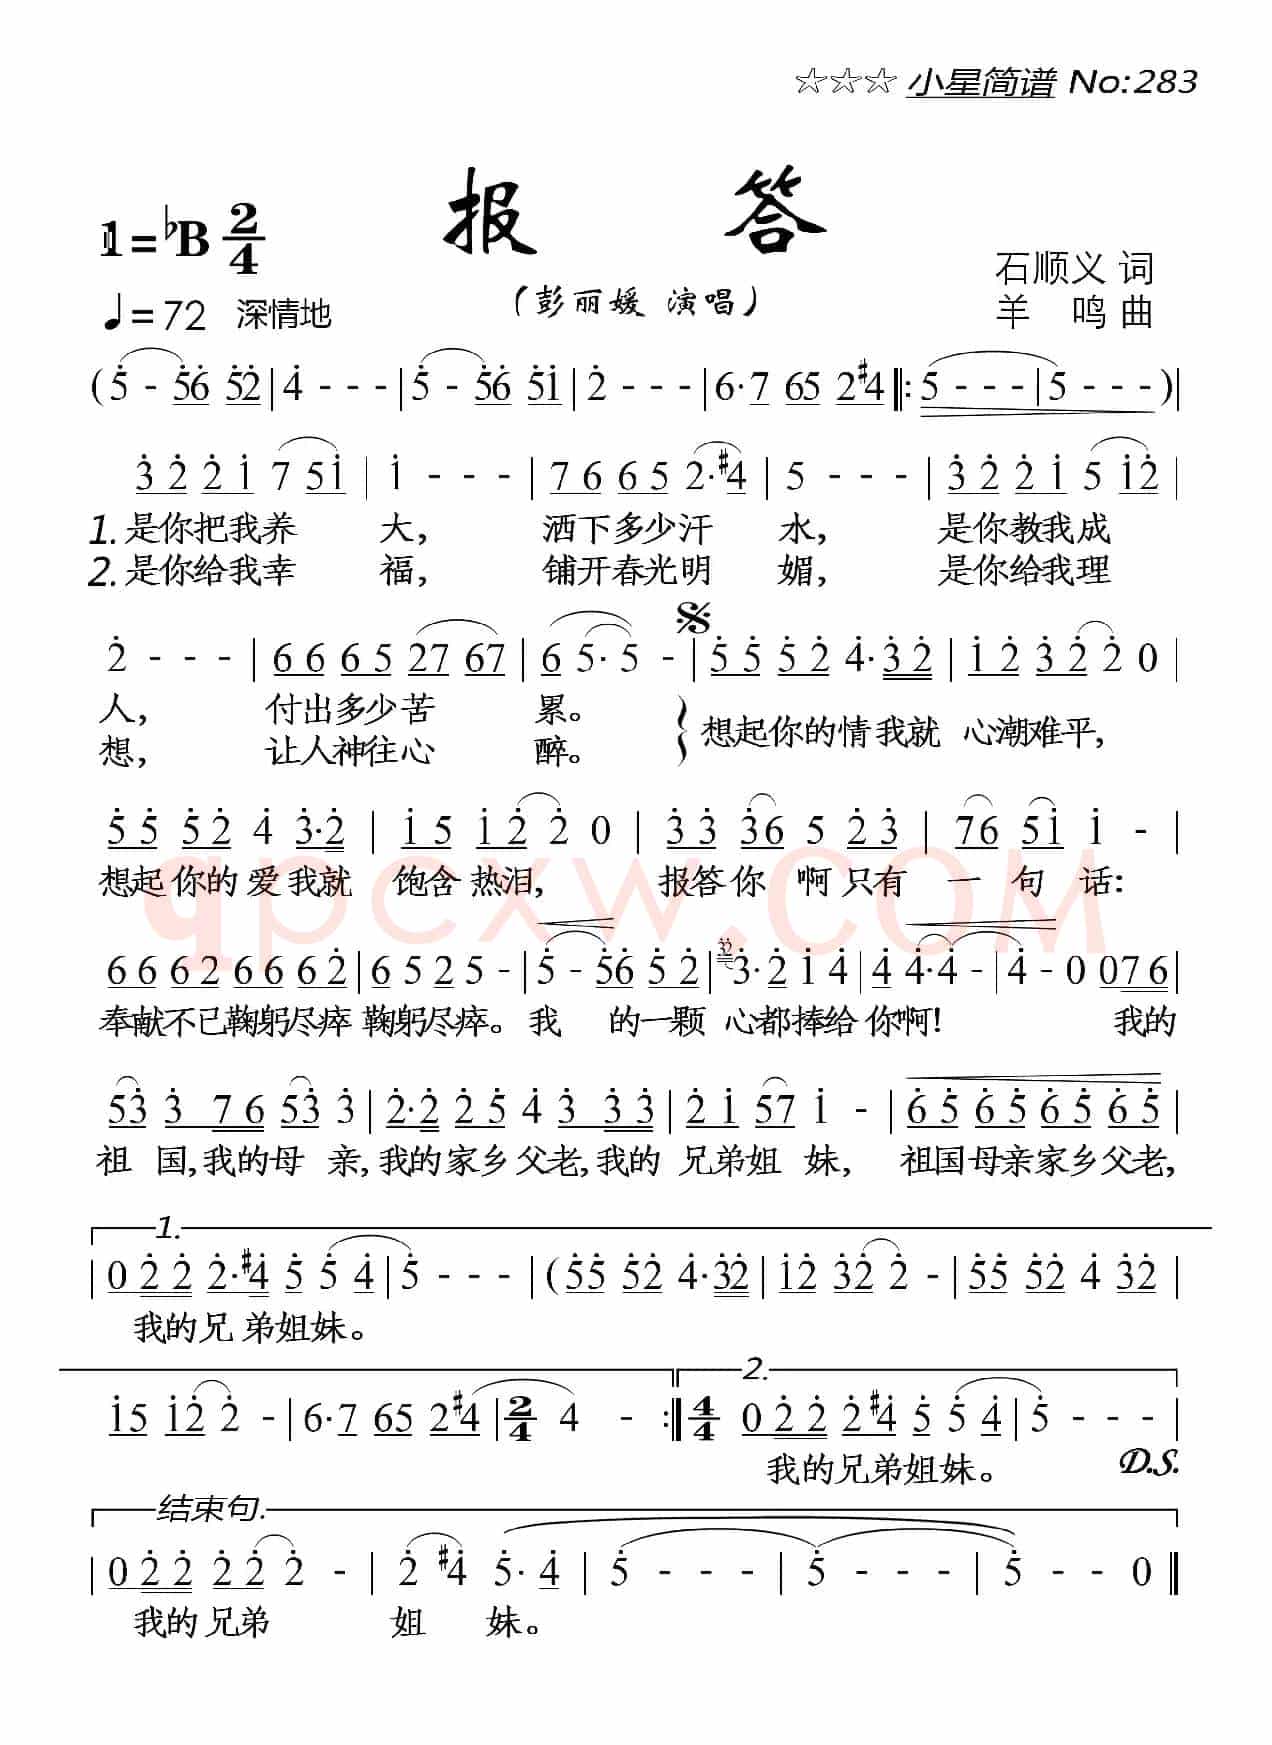 ☆☆☆ 小星简谱 No:283
报 答
1=♭B 2/4
(彭丽媛 演唱)
石顺义 词
♩=72 深情地
羊 鸣 曲
(5 - 56 52|4 - - -|5 - 56 51|2 - - -|6·7 65 2#4‖:5 - - -|5 - - -)|
3 2 2 1 7 51 | 1 - - - | 7 6 6 5 2·#4 | 5 - - - | 3 2 2 1 5 12 |
1. 是你把我养 大, 洒下多少汗 水, 是你教我成
2. 是你给我幸 福, 铺开春光明 媚, 是你给我理
2 - - - | 6 6 6 5 27 67 | 6 5· 5 - | 5 5 5 2 4·32 | 1 2 3 2 2 0 |
人, 付出多少苦 累。
想起你的情我就 心潮难平,
想, 让人神往心 醉。
5 5 5 2 4 3·2 | 1 5 1 2 2 0 | 3 3 36 5 2 3 | 76 51 1 - |
想起你的爱我就 饱含热泪, 报答你 啊只有 一 句 话:
qpcxw.COM
6 6 6 2 6 6 6 2 | 6 5 2 5 - | 5 - 56 5 2 | 32 3·2 1 4 | 4 4·4 - | 4 - 0 076 |
奉献不已鞠躬尽瘁 鞠躬尽瘁。我 的一颗 心都捧给 你啊! 我的
53 3 76 53 3 | 2·2 2 5 4 3 3 3 | 2 1 57 1 - | 6 5 6 5 6 5 6 5 |
祖 国,我的母 亲,我的家乡父老,我的 兄弟姐 妹, 祖国母亲家乡父老,
1.
| 0 2 2 2·#4 5 5 4 | 5 - - - | (55 52 4·32 | 12 32 2 - | 55 52 4 32 |
我的兄弟姐妹。
2.
15 12 2 - | 6·7 65 2#4 | 2/4 4 - :‖ 4/4 0 2 2 2#4 5 5 4 | 5 - - - |
我的兄弟姐妹。 D.S.
结束句.
| 0 2 2 2 2 2 - | 2 #4 5· 4 | 5 - - - | 5 - - - | 5 - - 0 ‖
我的兄弟 姐 妹。